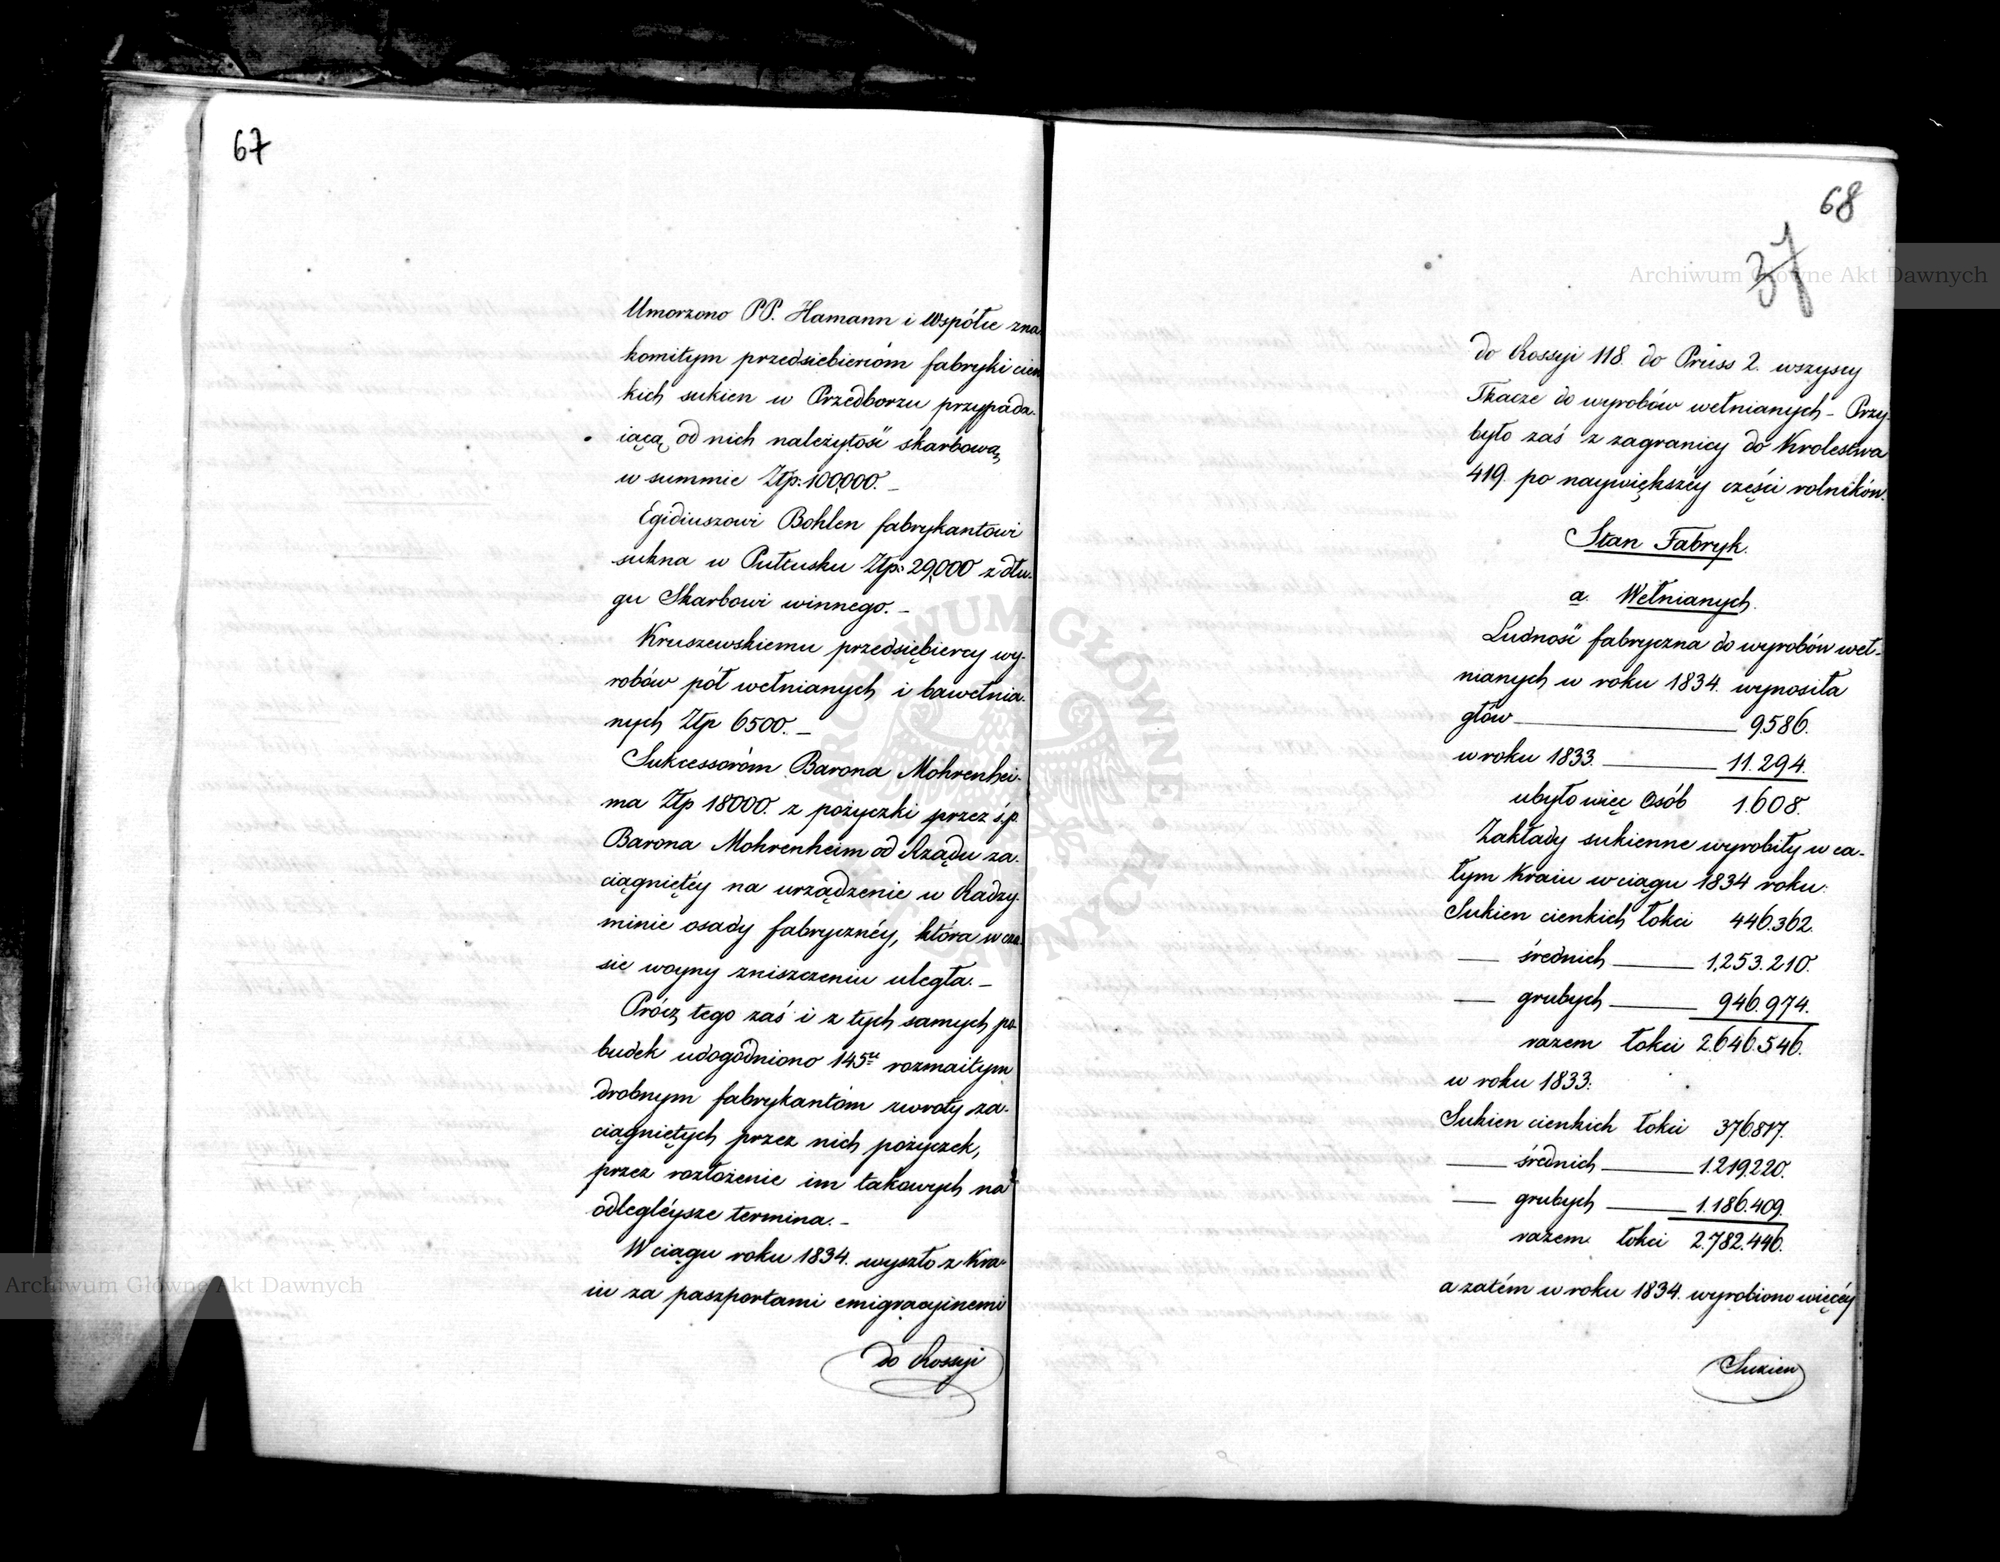 67
Umorzono PP. Hamann i Wspólce zna
komitym przedsiebiercóm fabryki cien
kich sukien w Przedborzu przypada-
iącą od nich należytość skarbową
w summie Złp: 100,000. –
Egidiuszowi Bohlen fabrykantowi
sukna w Pułtusku Złp: 29,000 z dłu-
gu Skarbowi winnego. –
Kruszewskiemu przedsiębiercy wy-
robów pół wełnianych i bawełnia-
nych Złp 6500. –
Sukcessoróm Barona Mohrenhei-
ma Złp 18000. z pożyczki przez ś.p.
Barona Mohrenheim od Rządu za-
ciągniętéy na urządzenie w Radzy-
minie osady fabrycznéy, która w cza-
sie woyny zniszczeniu uległa. –
Prócz tego zaś i z tych samych po-
budek udogodniono 145u rozmaitym
drobnym fabrykantóm zwroty za-
ciągniętych przez nich pożyczek,
przez rozłożenie im takowych na
odlegléysze termina. –
W ciągu roku 1834. wyszło z Kra-
iu za paszportami emigracyinemi
do Rossyi
68
37
do Rossyi 118. do Pruss 2. wszyscy
Tkacze do wyrobów wełnianych – Przy-
było zaś z zagranicy do Krolestwa
419. po naywiększey części rolników.
Stan Fabryk.
a. Wełnianych.
Ludność fabryczna do wyrobów weł-
nianych w roku 1834. wynosiła
głów 9,586.
w roku 1833. 11.294.
ubyło więc osób 1.608.
Zakłady sukienne wyrobiły w ca-
łym Kraiu w ciągu 1834 roku:
Sukien cienkich łokci 446.362.
— średnich 1,253.210.
— grubych 946.974.
razem łokci 2.646.546.
w roku 1833.
Sukien cienkich łokci 376.817.
— średnich 1.219.220.
— grubych 1.186.409.
razem łokci 2.782.446.
a zatém w roku 1834. wyrobiono więcéy
Sukien
Archiwum Główne Akt Dawnych
Archiwum Główne Akt Dawnych
ARCHIWUM GŁÓWNE AKT DAWNYCH